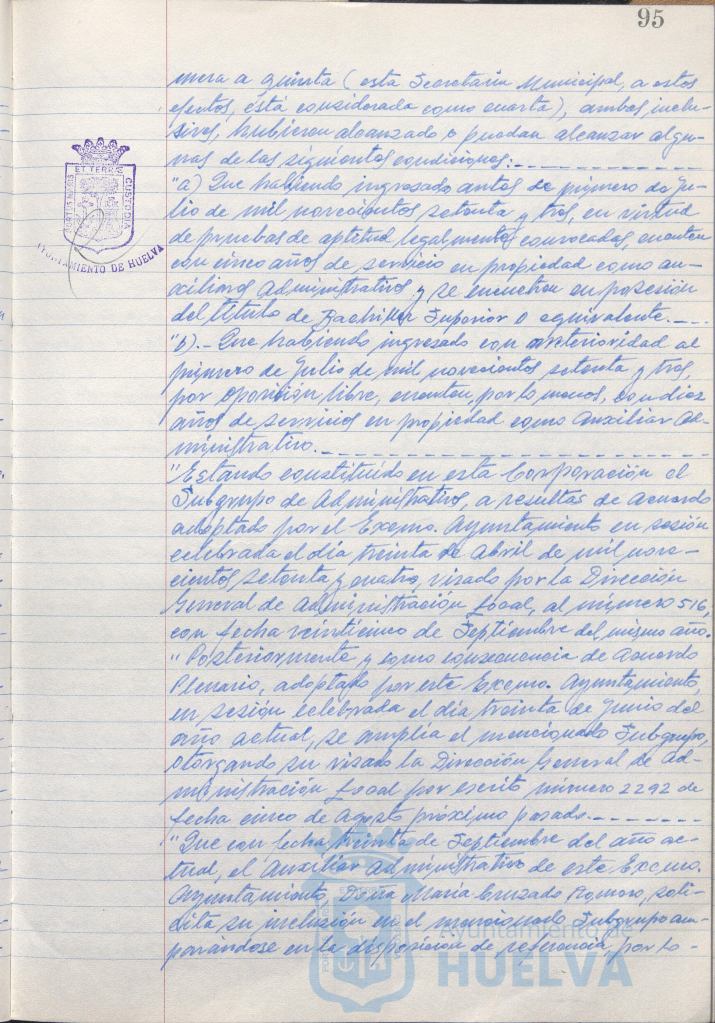 95
mera a quinta (esta Secretaría Municipal, a estos
efectos, está considerada como cuarta), ambas inclu-
sives, hubieran alcanzado o puedan alcanzar algu-
nas de las siguientes condiciones:
"a) Que habiendo ingresado antes de primero de Ju-
lio de mil novecientos setenta y tres, en virtud
de pruebas de aptitud legalmente convocadas, cuenten
con cinco años de servicio en propiedad como au-
xiliares Administrativos y se encuetren en posesión
del título de Bachiller Superior o equivalente.
"b).- Que habiendo ingresado con anterioridad al
primero de Julio de mil novecientos setenta y tres,
por oposición libre, cuenten, por lo menos, con diez
años de servicios en propiedad como Auxiliar Ad-
ministrativo.
"Estando constituído en esta Corporación el
Subgrupo de Administrativos, a resultas de Acuerdo
adoptado por el Excmo. Ayuntamiento en sesión
celebrada el día treinta de Abril de mil nove-
cientos setenta y cuatro, visado por la Dirección
General de Administración Local, al número 516,
con fecha veinticinco de Septiembre del mismo año.
"Posteriormente y como consecuencia de Acuerdo
Plenario, adoptado por este Excmo. Ayuntamiento,
en sesión celebrada el día treinta de Junio del
año actual, se amplía el mencionado Subgrupo,
otorgando su visado la Dirección General de Ad-
ministración Local por escrito número 2292 de
fecha cinco de Agosto próximo pasado.
"Que con fecha treinta de Septiembre del año ac-
tual, el Auxiliar Administrativo de este Excmo.
Ayuntamiento, Doña María Cruzado Romero, soli-
cita su inclusión en el mencionado Subgrupo am-
parándose en la disposición de referencia, por lo-
ET TERRÆ
CUSTODIA
AYUNTAMIENTO DE HUELVA
Ayuntamiento de
HUELVA